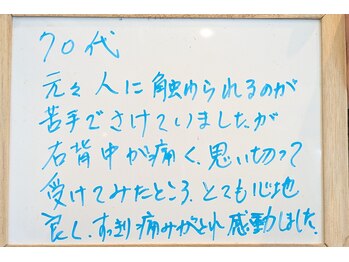 70代
元々人に触められるのが
苦手でさけていましたが
右背中が痛く、思い切って
受けてみたところ、とても心地
良く、すっきり痛みがとれ感動しました。